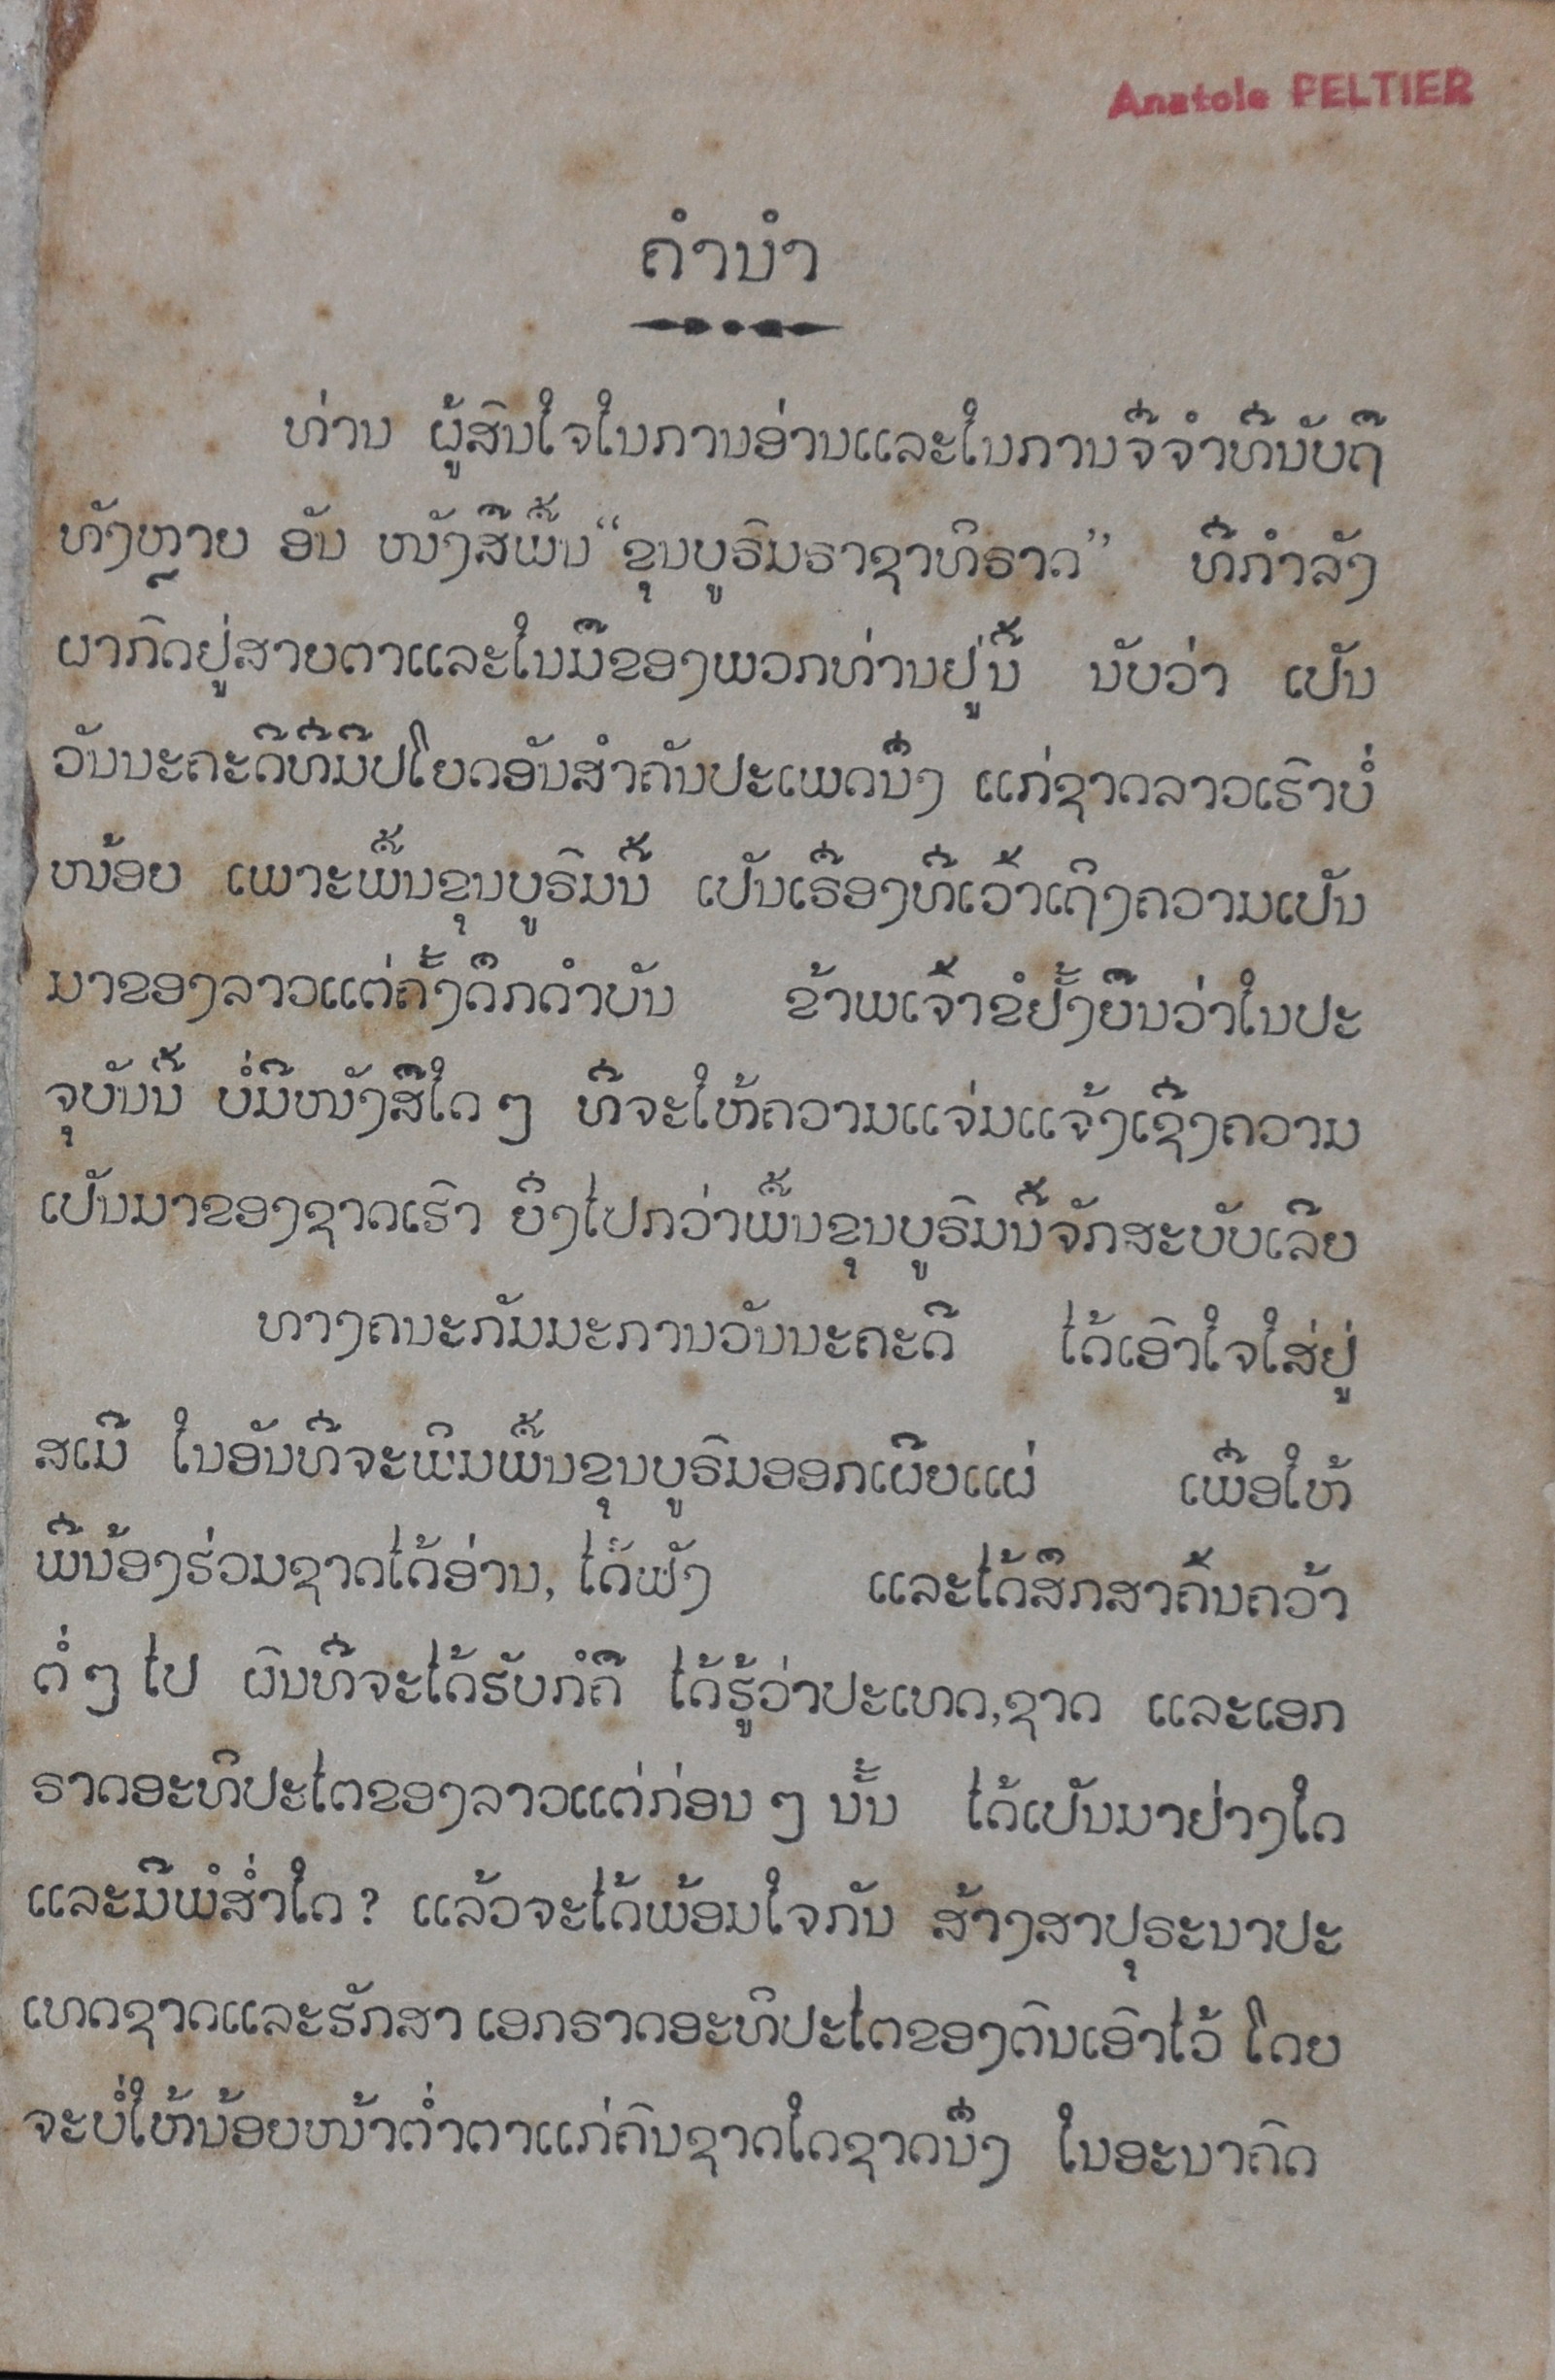 Anatole PELTIER
ຄຳນຳ
ທ່ານ ຜູ້ສົນໃຈໃນການອ່ານແລະໃນການຈື່ຈຳທີ່ນັບຖື
ທັງຫຼາຍ ອັນ ໜັງສືພື້ນ“ຂຸນບູຣົມຣາຊາທິຣາດ” ທີ່ກຳລັງ
ຜາກົດຢູ່ສາຍຕາແລະໃນມືຂອງພວກທ່ານຢູ່ນີ້ ນັບວ່າ ເປັນ
ວັນນະຄະດີທີ່ມີປໂຍດອັນສຳຄັນປະເພດນຶ່ງ ແກ່ຊາດລາວເຮົາບໍ່
ໜ້ອຍ ເພາະພື້ນຂຸນບູຣົມນີ້ ເປັນເຣື່ອງທີ່ເວົ້າເຖິງຄວາມເປັນ
ມາຂອງລາວແຕ່ຄັ້ງດຶກດຳບັນ ຂ້າພເຈົ້າຂໍຢັ້ງຍືນວ່າໃນປະ
ຈຸບັນນີ້ ບໍ່ມີໜັງສືໃດໆ ທີ່ຈະໃຫ້ຄວາມແຈ່ມແຈ້ງເຊິ່ງຄວາມ
ເປັນມາຂອງຊາດເຮົາ ຍິ່ງໄປກວ່າພື້ນຂຸນບູຣົມນີ້ຈັກສະບັບເລີຍ
ທາງຄນະກັມມະການວັນນະຄະດີ ໄດ້ເອົາໃຈໃສ່ຢູ່
ສເມີ ໃນອັນທີ່ຈະພິມພື້ນຂຸນບູຣົມອອກເຜີຍແຜ່ ເພື່ອໃຫ້
ພີ່ນ້ອງຮ່ວມຊາດໄດ້ອ່ານ, ໄດ້ຟັງ ແລະໄດ້ສຶກສາຄົ້ນຄວ້າ
ຕໍ່ໆ ໄປ ຜົນທີ່ຈະໄດ້ຮັບກໍຄື ໄດ້ຮູ້ວ່າປະເທດ,ຊາດ ແລະເອກ
ຣາດອະທິປະໄຕຂອງລາວແຕ່ກ່ອນໆ ນັ້ນ ໄດ້ເປັນມາຢ່າງໃດ
ແລະມີພໍສ່ຳໃດ? ແລ້ວຈະໄດ້ພ້ອມໃຈກັນ ສ້າງສາປຸຣະນາປະ
ເທດຊາດແລະຮັກສາ ເອກຣາດອະທິປະໄຕຂອງຕົນເອົາໄວ້ ໂດຍ
ຈະບໍ່ໃຫ້ນ້ອຍໜ້າຕ່ຳຕາແກ່ຄົນຊາດໃດຊາດນຶ່ງ ໃນອະນາຄົດ